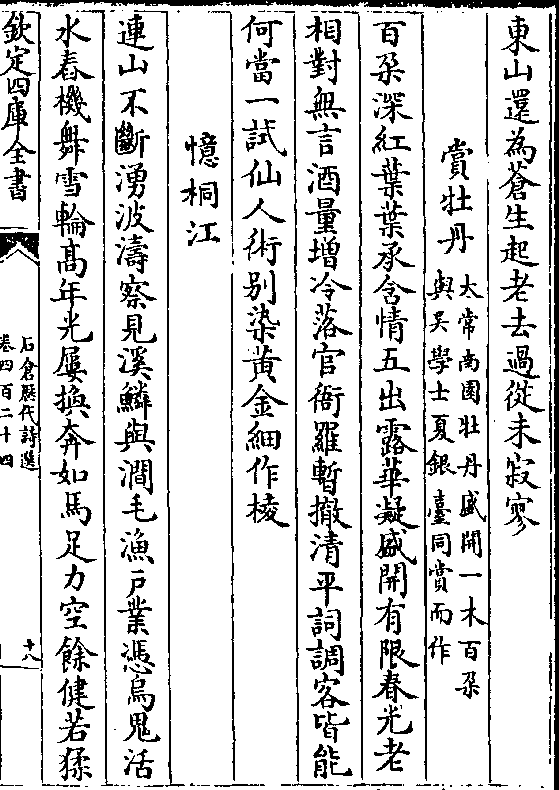 東山還為蒼生起老去過從未寂寥
賞牡丹
太常南園牡丹盛開一木百朶
與吳學士夏銀臺同賞而作
百朶深紅葉葉承含情五出露華凝盛開有限春光老
相對無言酒量增冷落官衙羅暫撤清平詞調客皆能
何當一試仙人術別染黃金細作棱
憶桐江
連山不斷湧波濤察見溪鱗與澗毛漁戶業憑烏鬼活
水舂機舞雪輪高年光屢換奔如馬足力空餘健若猱
欽定四庫全書
石倉歷代詩選
卷四百二十四
十八